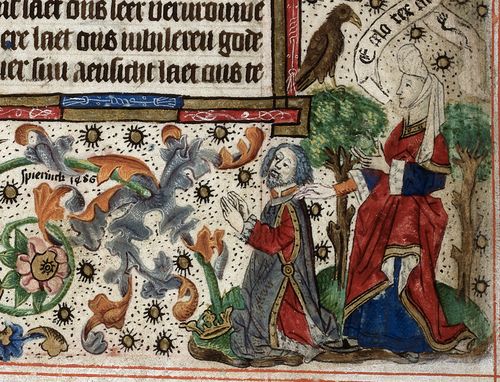 laet ons leer verurouwe
ere laet ons iubileren gode
uer siin aensicht laet ons te
spierinck 1486